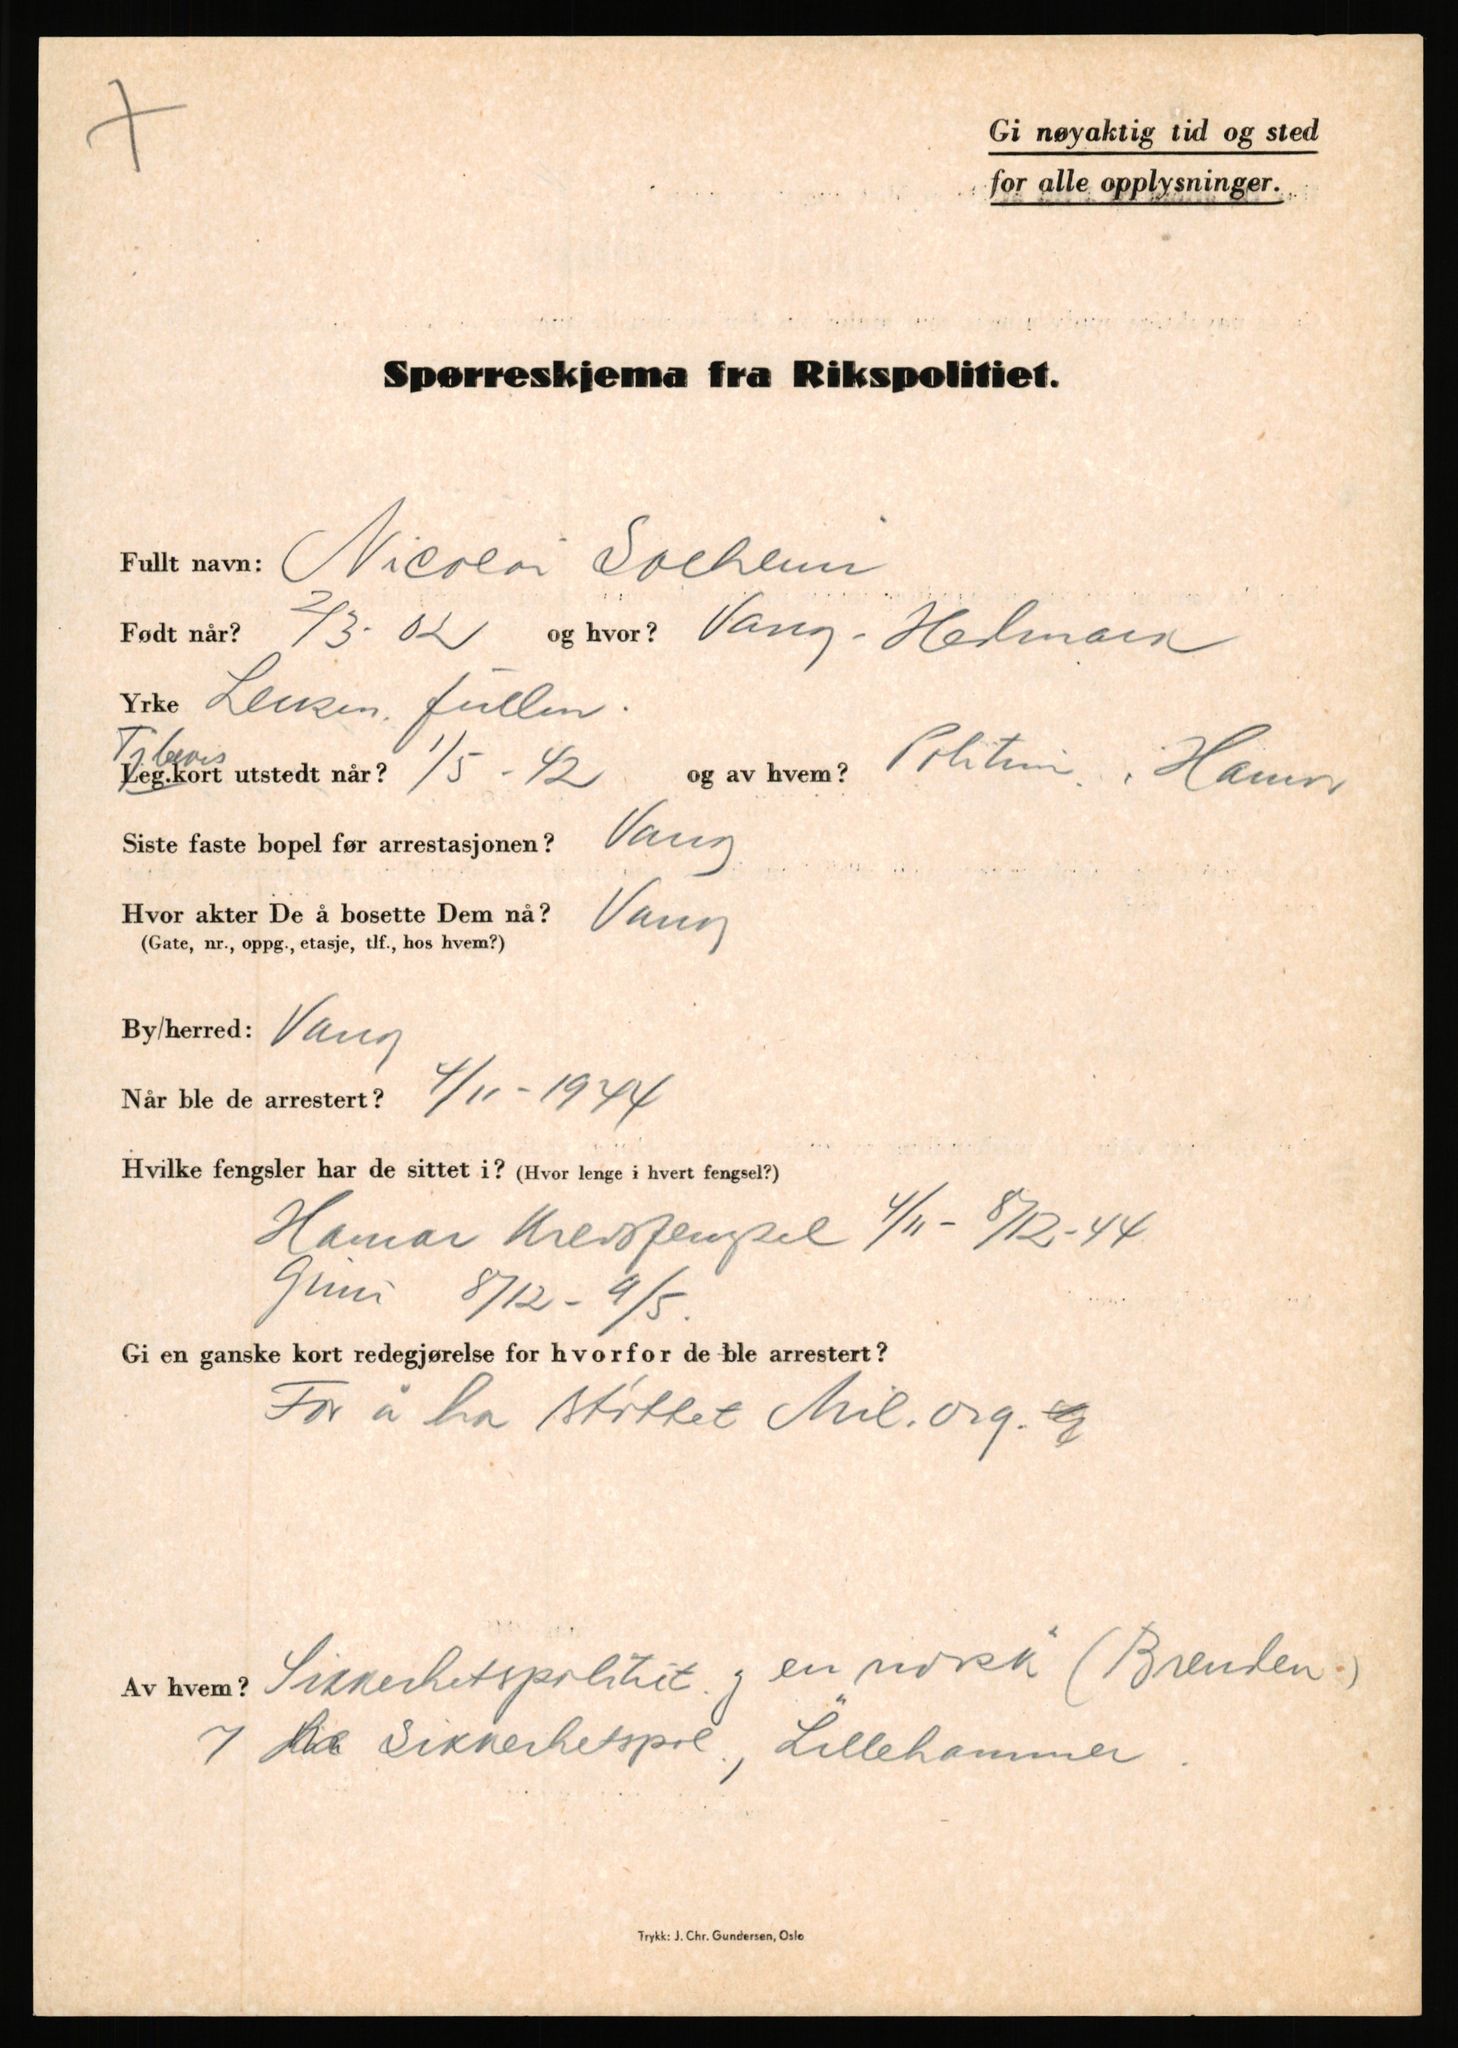 Gi nøyaktig tid og sted
for alle opplysninger.
Spørreskjema fra Rikspolitiet.
Fullt navn: Nicolai
Født når? 2/3-02 og hvor? Vang - Hedmark
Yrke
Leg.kort utstedt når? 1/5-42 og av hvem? i Hamar
Siste faste bopel før arrestasjonen? Vang
Hvor akter De å bosette Dem nå? Vang
(Gate, nr., oppg., etasje, tlf., hos hvem?)
By/herred: Vang
Når ble de arrestert? 4/11-1944
Hvilke fengsler har de sittet i? (Hvor lenge i hvert fengsel?)
Hamar Kredsfengsel 4/11 - 8/12-44
Grini 8/12 - 9/5.
Gi en ganske kort redegjørelse for hvorfor de ble arrestert?
For å ha støttet Mil. org.
Av hvem? Sikkerhetspolitiet. en norsk (Brenden.)
Sikkerhetspol., Lillehammer.
Trykk: J. Chr. Gundersen, Oslo